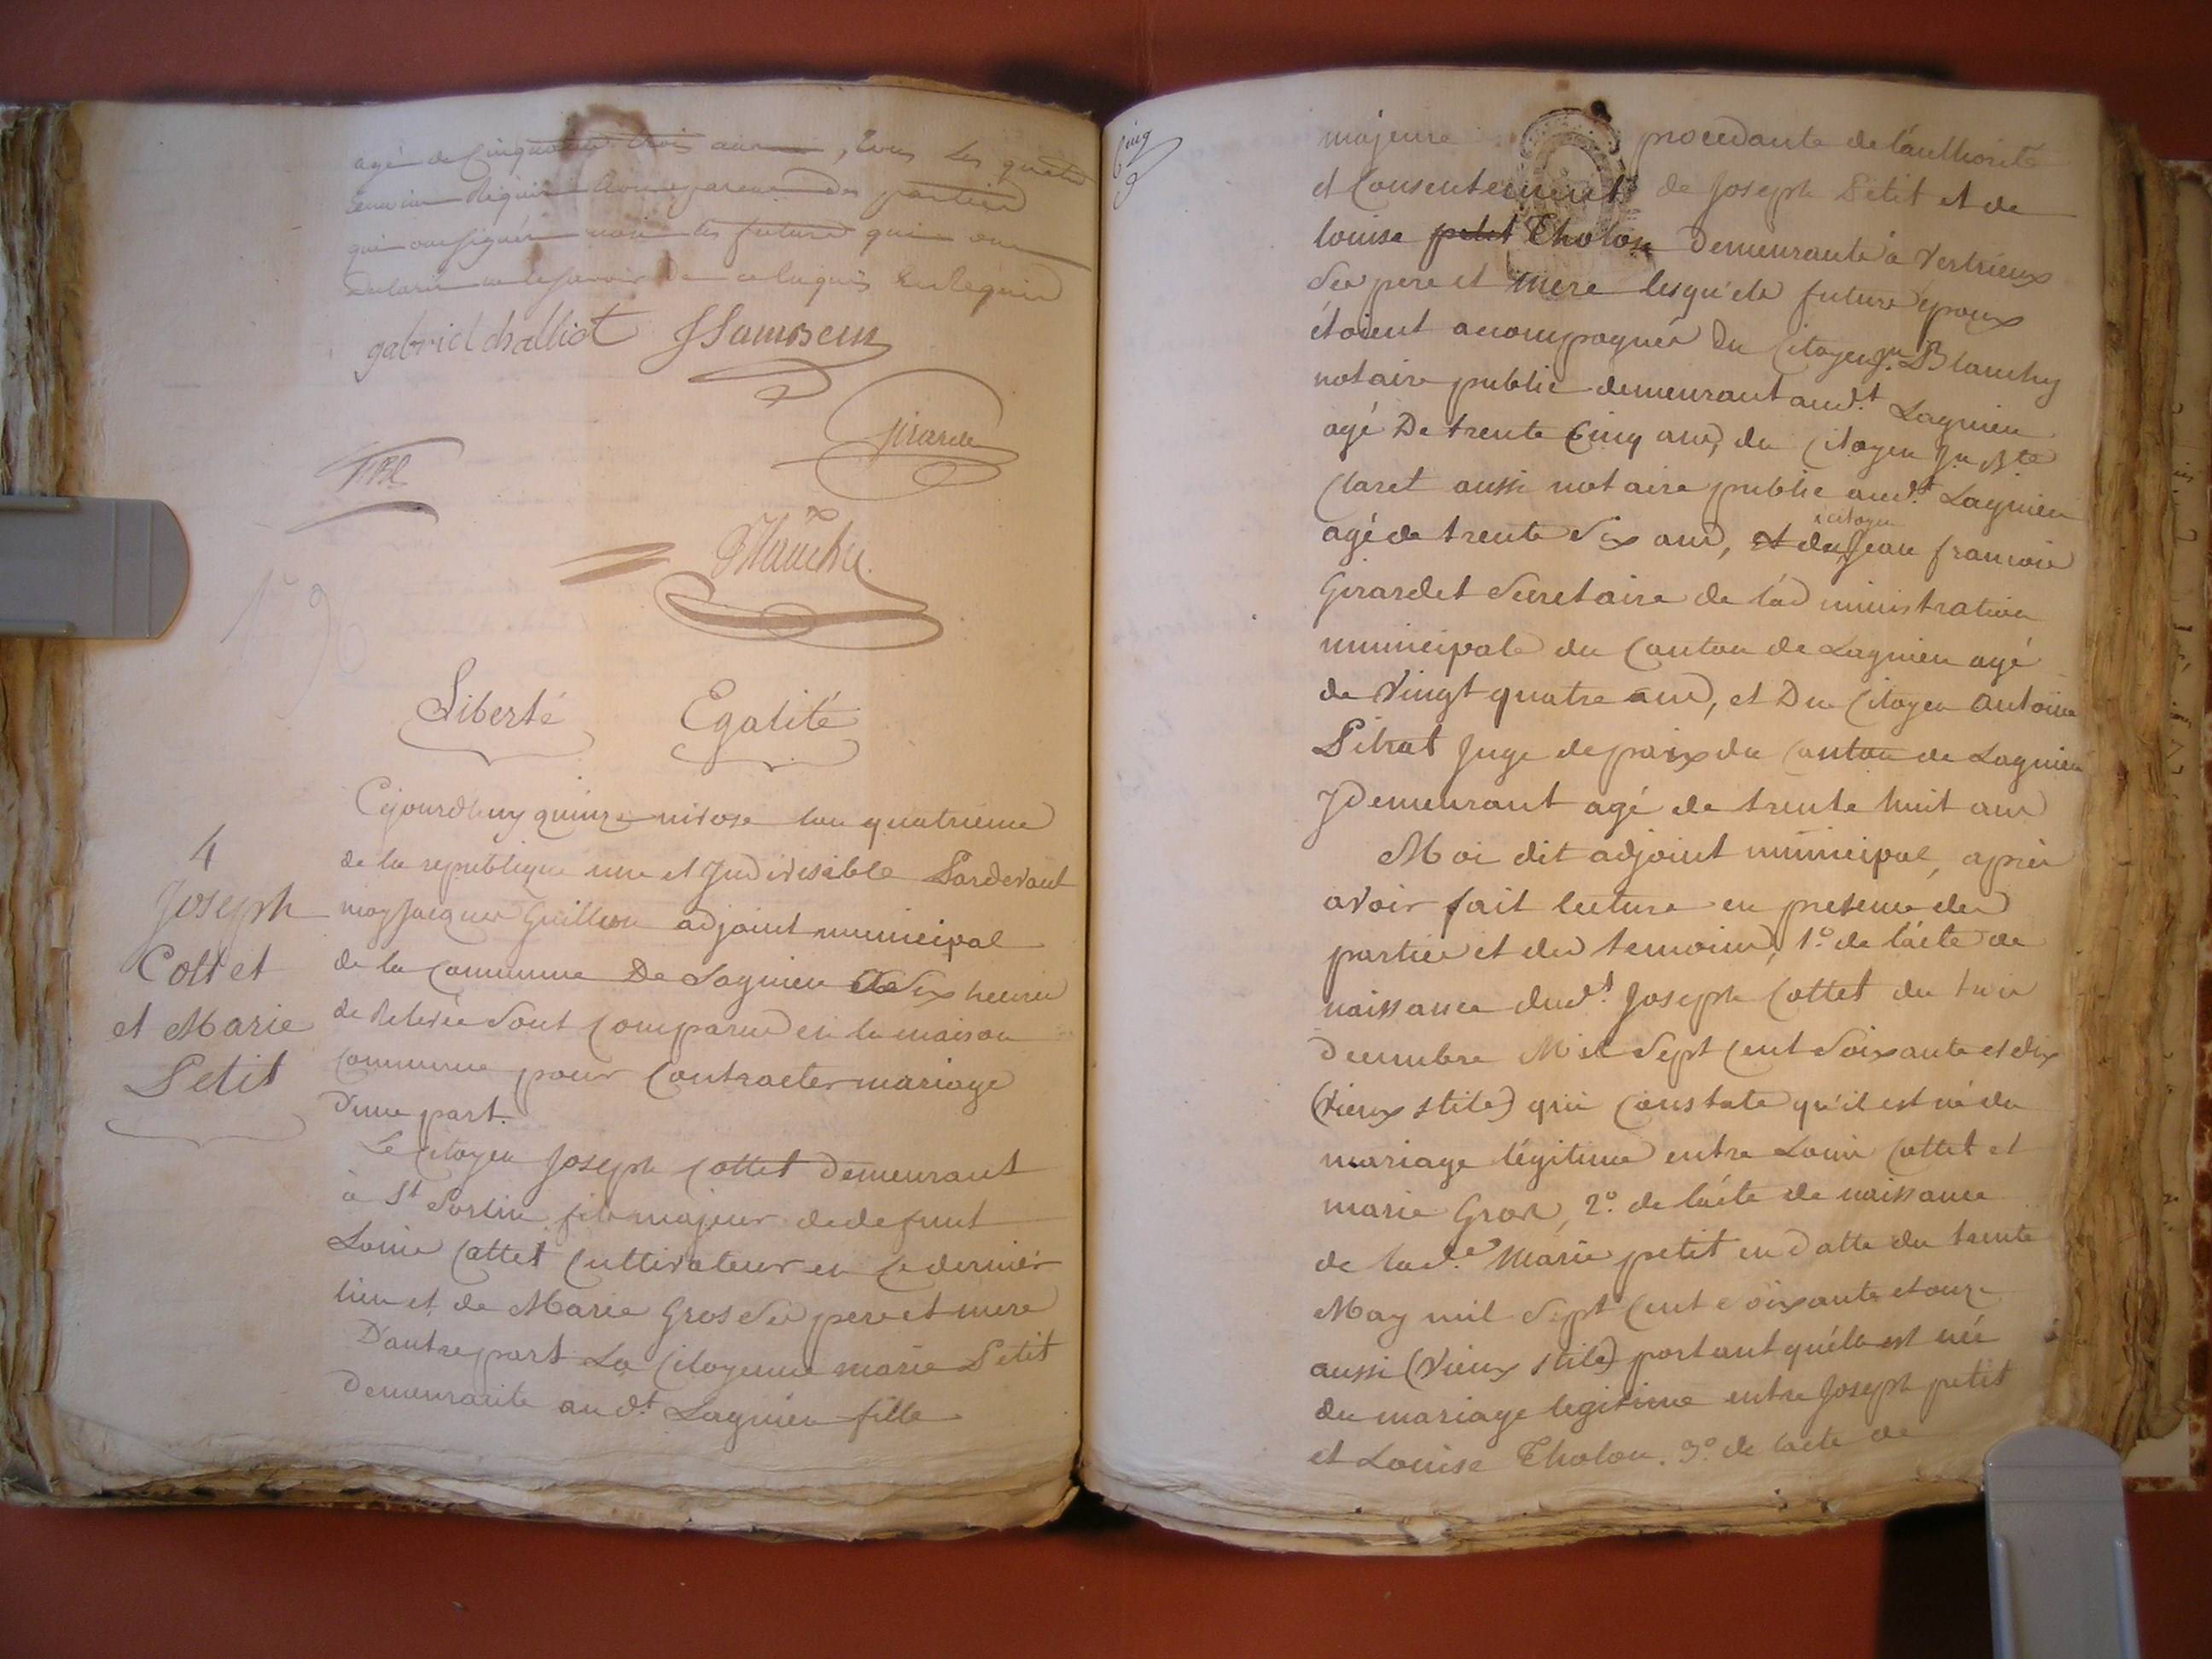 agé de Cinquante trois ans, tous les quatre
temoins Requis non parens des parties
qui ont signés non les futurs qui ont
declaré ne le savoir de ce Enquis et Requis
gabriel challiot JSamsein
girardet
Blanchy
Liberté Egalité
Cejourdhuy quinze nivose lan quatrieme
de la republique une et Indivisible Pardevant
moy Jacques Guillion adjoint municipal
de la Commune De Lagnieu à Six heures
de Relevée Sont Comparus en la maison
Commune pour Contracter mariage
d'une part.
4
Joseph
Cottet
et Marie
Petit
Le Citoyen Joseph Cottet Demeurant
à St Sorlin fils majeur de defunt
Louis Cottet Cultivateur en Ce dernier
lieu et de Marie Gros ses pere et mere
D'autre part La Citoyenne marie Petit
Demeurante aud.t Lagnieu fille
Cinq
majeure procedante de l'authorité
et Consentement de Joseph Petit et de
louise petit Tholon Demeurante à Vertrieux
Ses pere et mere lesquels futurs epoux
étoient acompagnés Du Citoyen Jn. Blanchy
notaire public demeurant aud.t Lagnieu
agé De trente Cinq ans, du Citoyen Jn Bte
Claret aussi notaire public aud.t Lagnieu
agé de trente Six ans, et du Jean francois
citoyen
Girardet Secretaire de l'administration
municipale du Canton de Lagnieu agé
de Vingt quatre ans, et Du Citoyen antoine
Pitrat Juge de paix du Canton de Lagnieu
Y demeurant agé de trente huit ans
Moi dit adjoint municipal, après
avoir fait lecture en presence des
parties et des temoins, 1.° de l'acte de
naissance dud.t Joseph Cottet du trois
decembre Mil Sept Cent Soixante et dix
(vieux stile) qui Constate qu'il est né du
mariage légitime entre Louis Cottet et
marie Gros, 2.° de l'acte de naissance
de lad.e Marie petit en datte du trente
May mil Sept Cent Soixante et onze
aussi (vieux stile) portant qu'elle est née
du mariage legitime entre Joseph petit
et Louise Tholon. 3.° de l'acte de